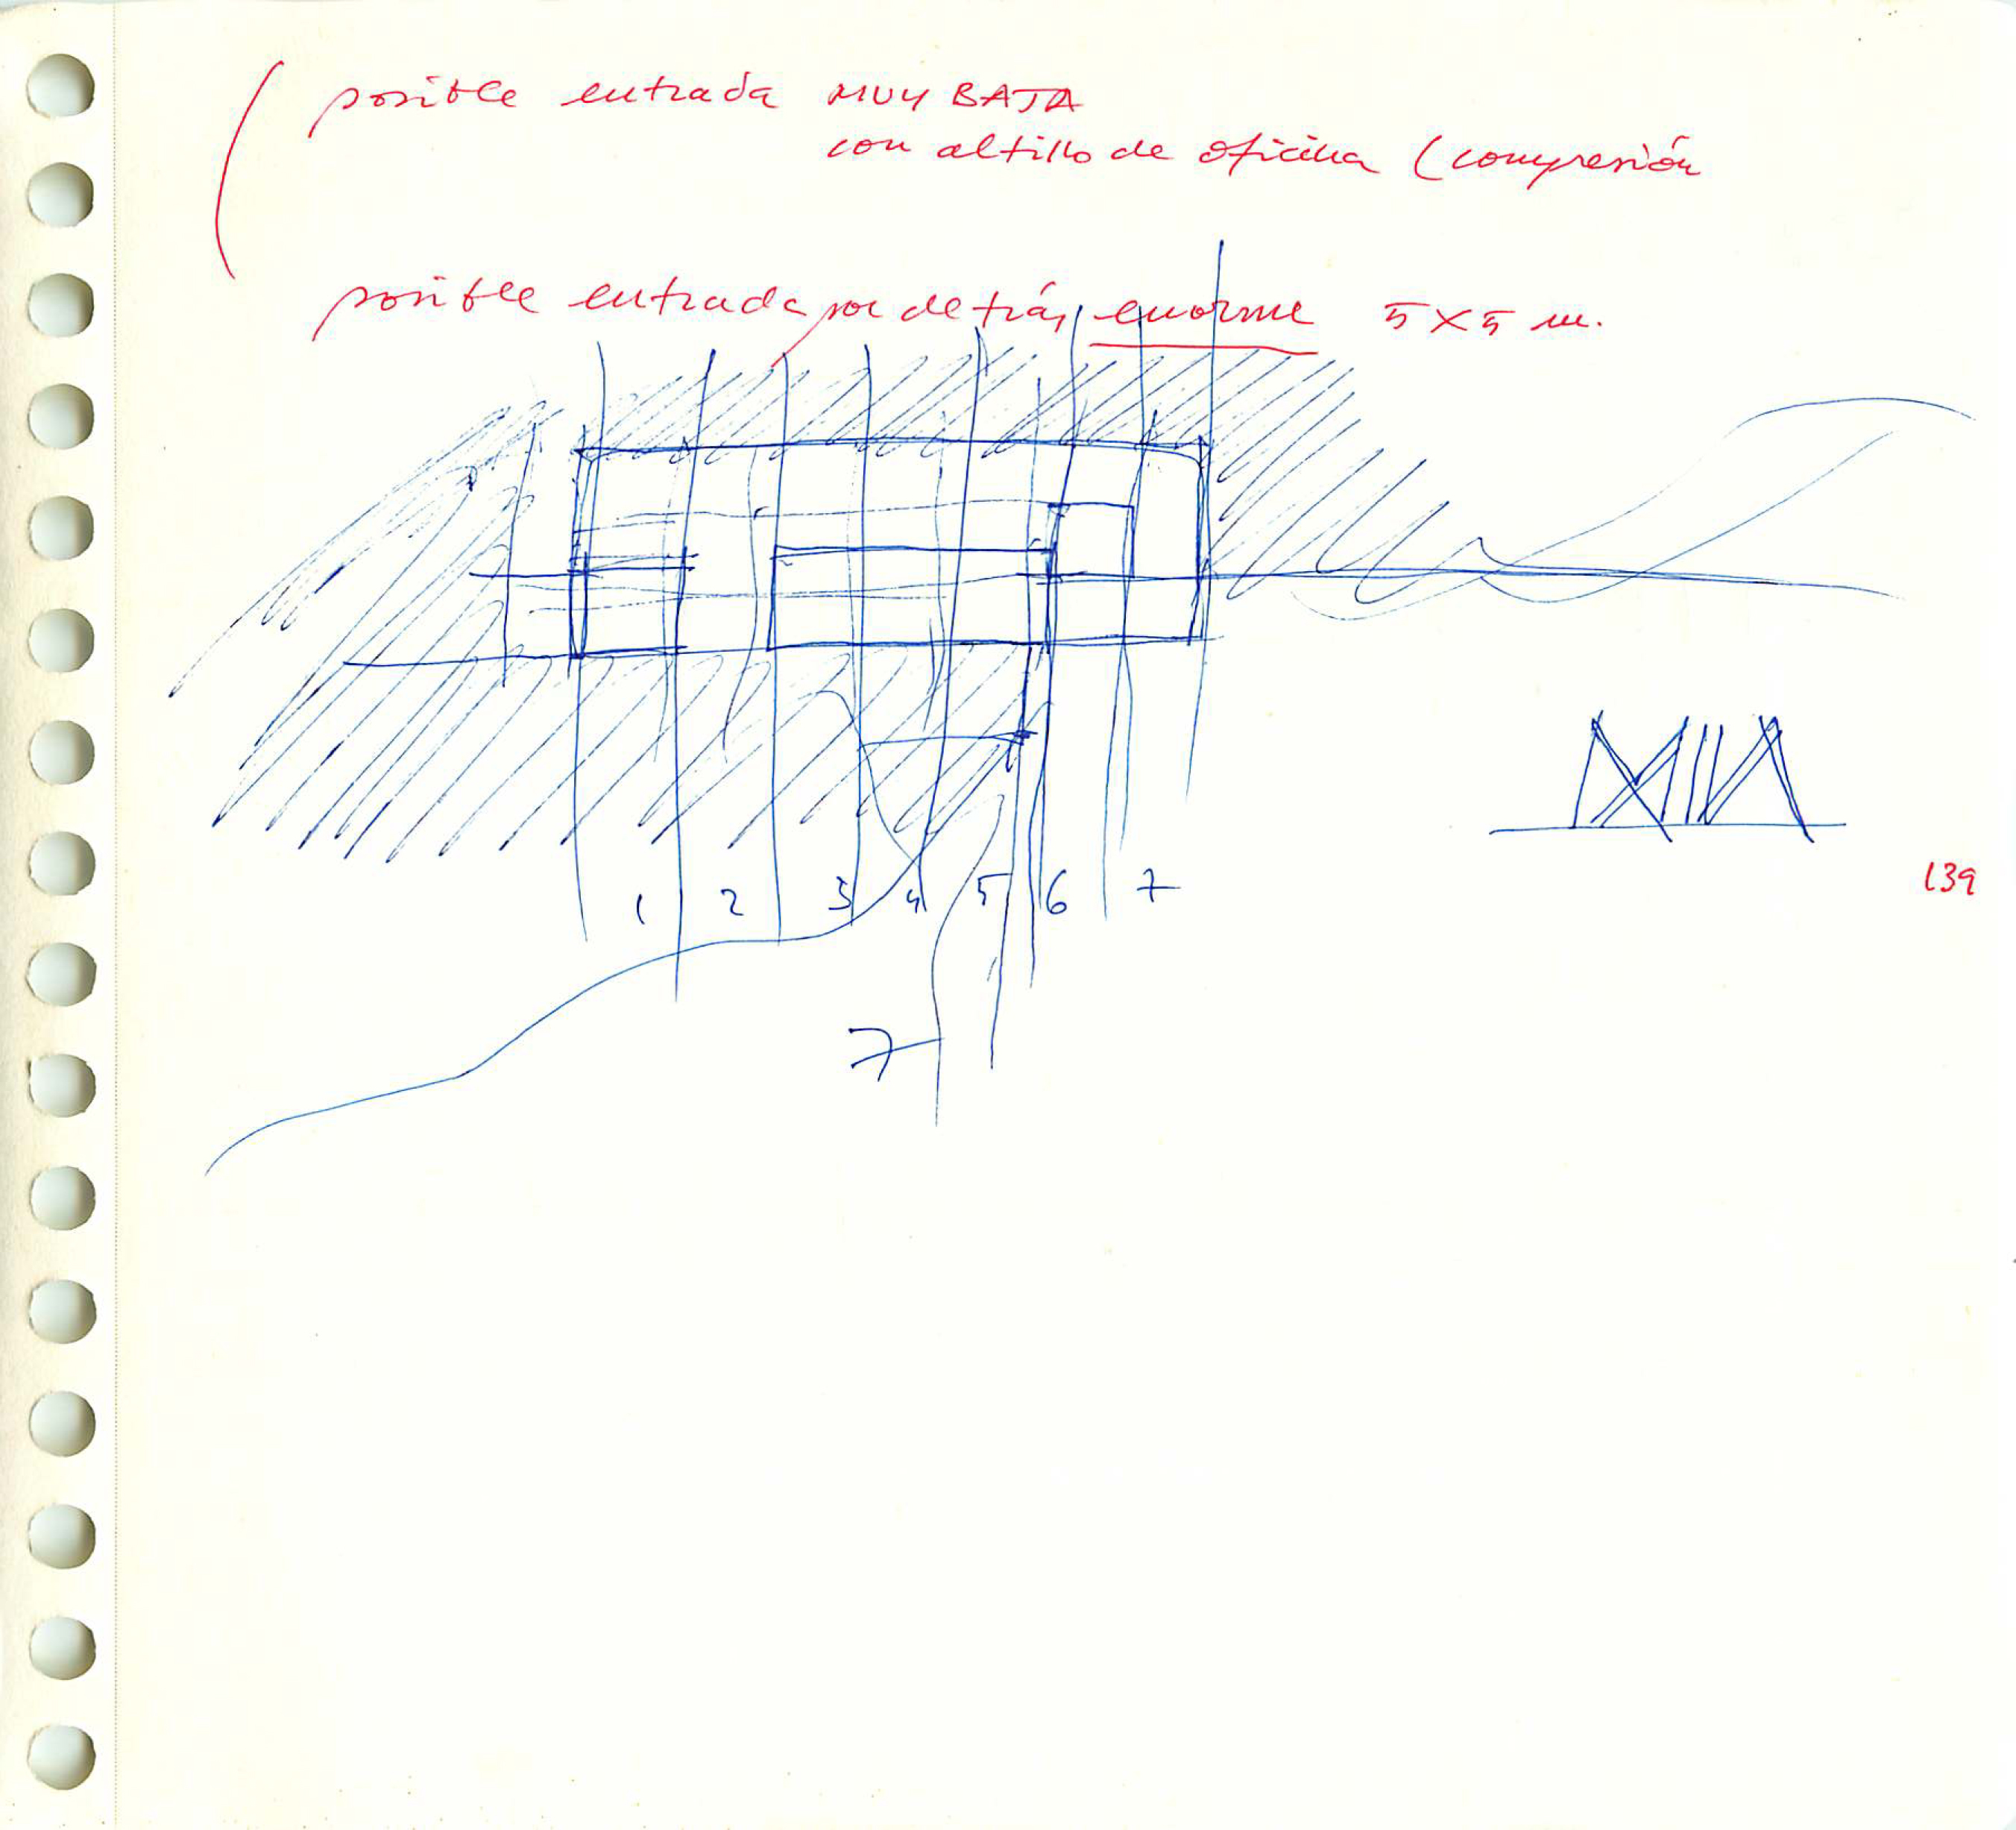 posible entrada MUY BAJA
con altillo de oficina (compresión
posible entrada por detrás enorme 5x5 m.
139
1 2 3 4 5 6 7
7